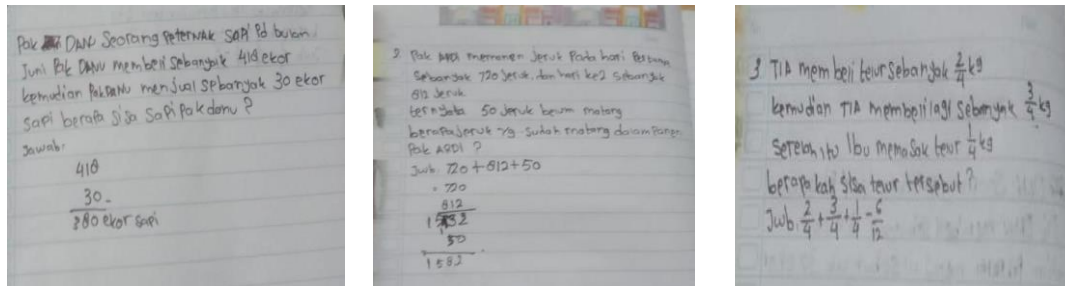 Pak DANU Seorang PeterNAk SAPi Pd bulan
Juni Pak DANU membeli Sebanyak 418 ekor
kemudian PAkDANU menjual Sebanyak 30 ekor
sapi berapa Sisa SaPi Pak danu ?
Jawab:
418
30 -
380 ekor sapi
2 Pak ARDI memanen Jeruk Pada hari
Sebanyak 720 Jeruk. dan hari ke2 Sebanyak
812 Jeruk
ternyata 50 Jeruk belum matang
berapa Jeruk Yg Sudah matang dalam Panen
Pak ARDI ?
Jwb. 720 + 812 + 50
720
812
1532
50
1582
3 TIA membeli telur Sebanyak 2/4 kg
kemudian TIA membeli lagi Sebanyak 3/4 kg
Setelah itu Ibu memasak telur 1/4 kg
berapakah Sisa telur tersebut?
Jwb. 2/4 + 3/4 + 1/4 = 6/12